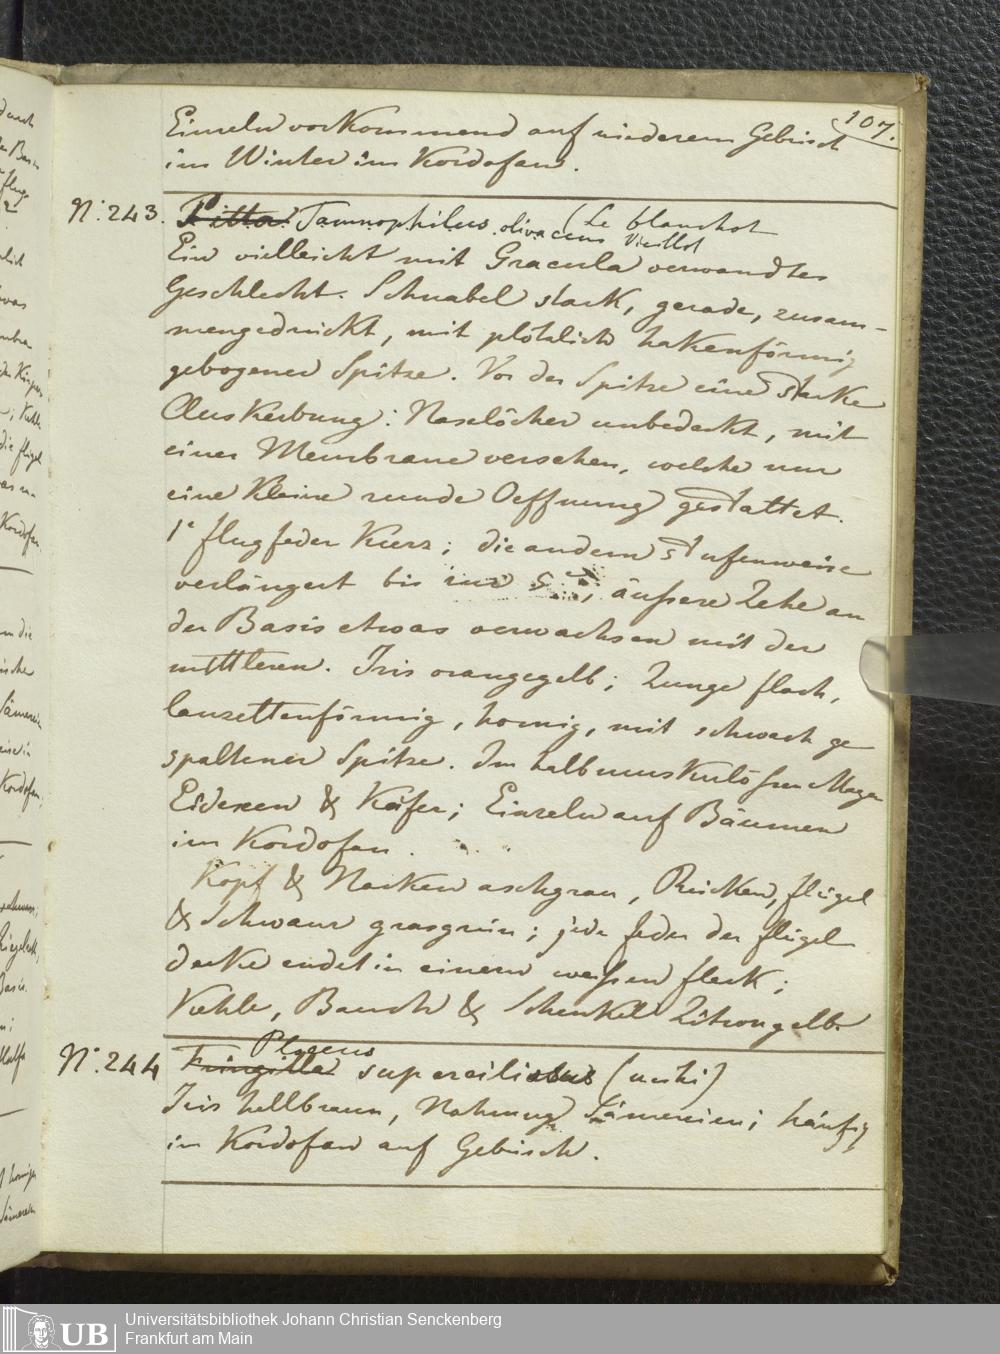 107.
Einzeln vorkommend auf niederem Gebüsch
im Winter im Kordofan.
N: 243. Pitta Tamnophilus olivaceus (Le blanchot
Vieillot
Ein vielleicht mit Gracula verwandtes
Geschlecht. Schnabel stark, gerade, zusam-
mengedrückt, mit plötzlich hakenförmig
gebogener Spitze. Vor der Spitze eine starke
Auskerbung: Naselöcher unbedeckt, mit
einer Membrane versehen, welche nur
eine kleine runde Oeffnung gestattet.
1e flugfeder kurz; die andern stufenweise
verlängert bis zur 5; äußere Zehe an
der Basis etwas verwachsen mit der
mittleren. Iris orangegelb; Zunge flach,
lanzettenförmig, hornig, mit schwach ge
spaltener Spitze. Im halbmuskulösen Magen
Eidexen & Käfer; Einzeln auf Bäumen
im Kordofan.
Kopf & Nacken aschgrau, Rücken, flügel
& Schwanz grasgrün; jede feder der flügel
decke endet in einem weißen fleck;
Kehle, Bauch & Schenkel Zitrongelb
N: 244 Fringilla Ploceus superciliosus (nobis)
Iris hellbraun, Nahrung Sämereien; häufig
in Kordofan auf Gebüsch.
Universitätsbibliothek Johann Christian Senckenberg
Frankfurt am Main
UB